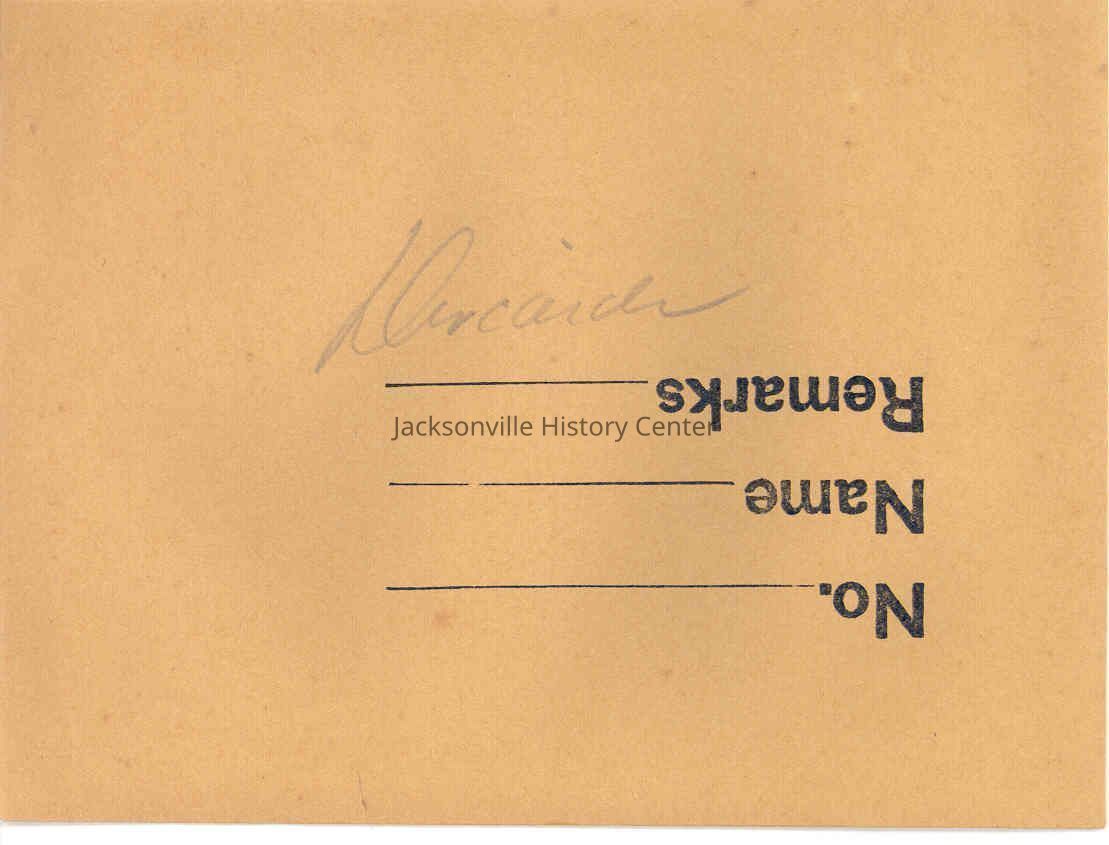 No.
Name
Remarks
Jacksonville History Center